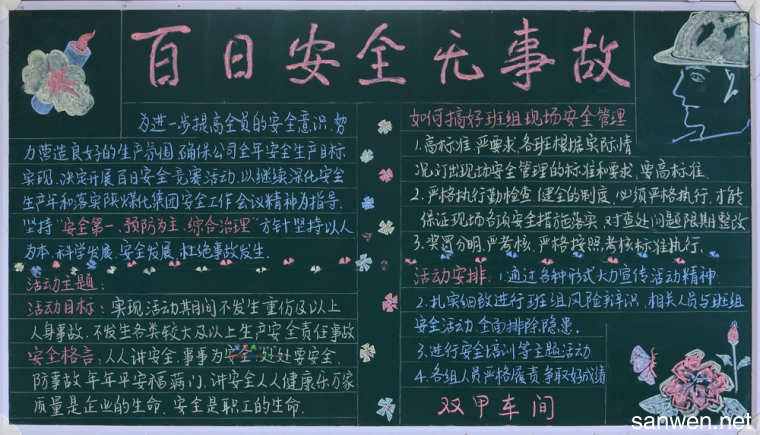 百日安全无事故
为进一步提高全员的安全意识,努
力营造良好的生产氛围,确保公司全年安全生产目标
实现,决定开展百日安全竞赛活动,以继续深化安全
生产年和落实陕煤化集团安全工作会议精神为指导.
坚持"安全第一、预防为主、综合治理"方针坚持以人
为本、科学发展、安全发展、杜绝事故发生.
活动主题:
活动目标:实现活动其间不发生重伤及以上
人身事故,不发生各类较大及以上生产安全责任事故
安全格言:人人讲安全,事事为安全,处处要安全.
防事故年年平安福满门,讲安全人人健康乐万家
质量是企业的生命.安全是职工的生命.
如何搞好班组现场安全管理
1.高标准,严要求,各班根据实际情
况订出现场安全管理的标准和要求,要高标准.
2.严格执行勤检查,健全的制度,必须严格执行,才能
保证现场各项安全措施落实,对查处问题限期整改
3.奖罚分明,严考核,严格按照考核标准执行.
活动安排:1.通过各种形式大力宣传活动精神
2.扎实细致进行班组风险辩识,相关人员与班组
安全活动全面排除隐患.
3.进行安全培训等主题活动
4.各组人员严格履责争取好成绩
双甲车间
sanwen.net